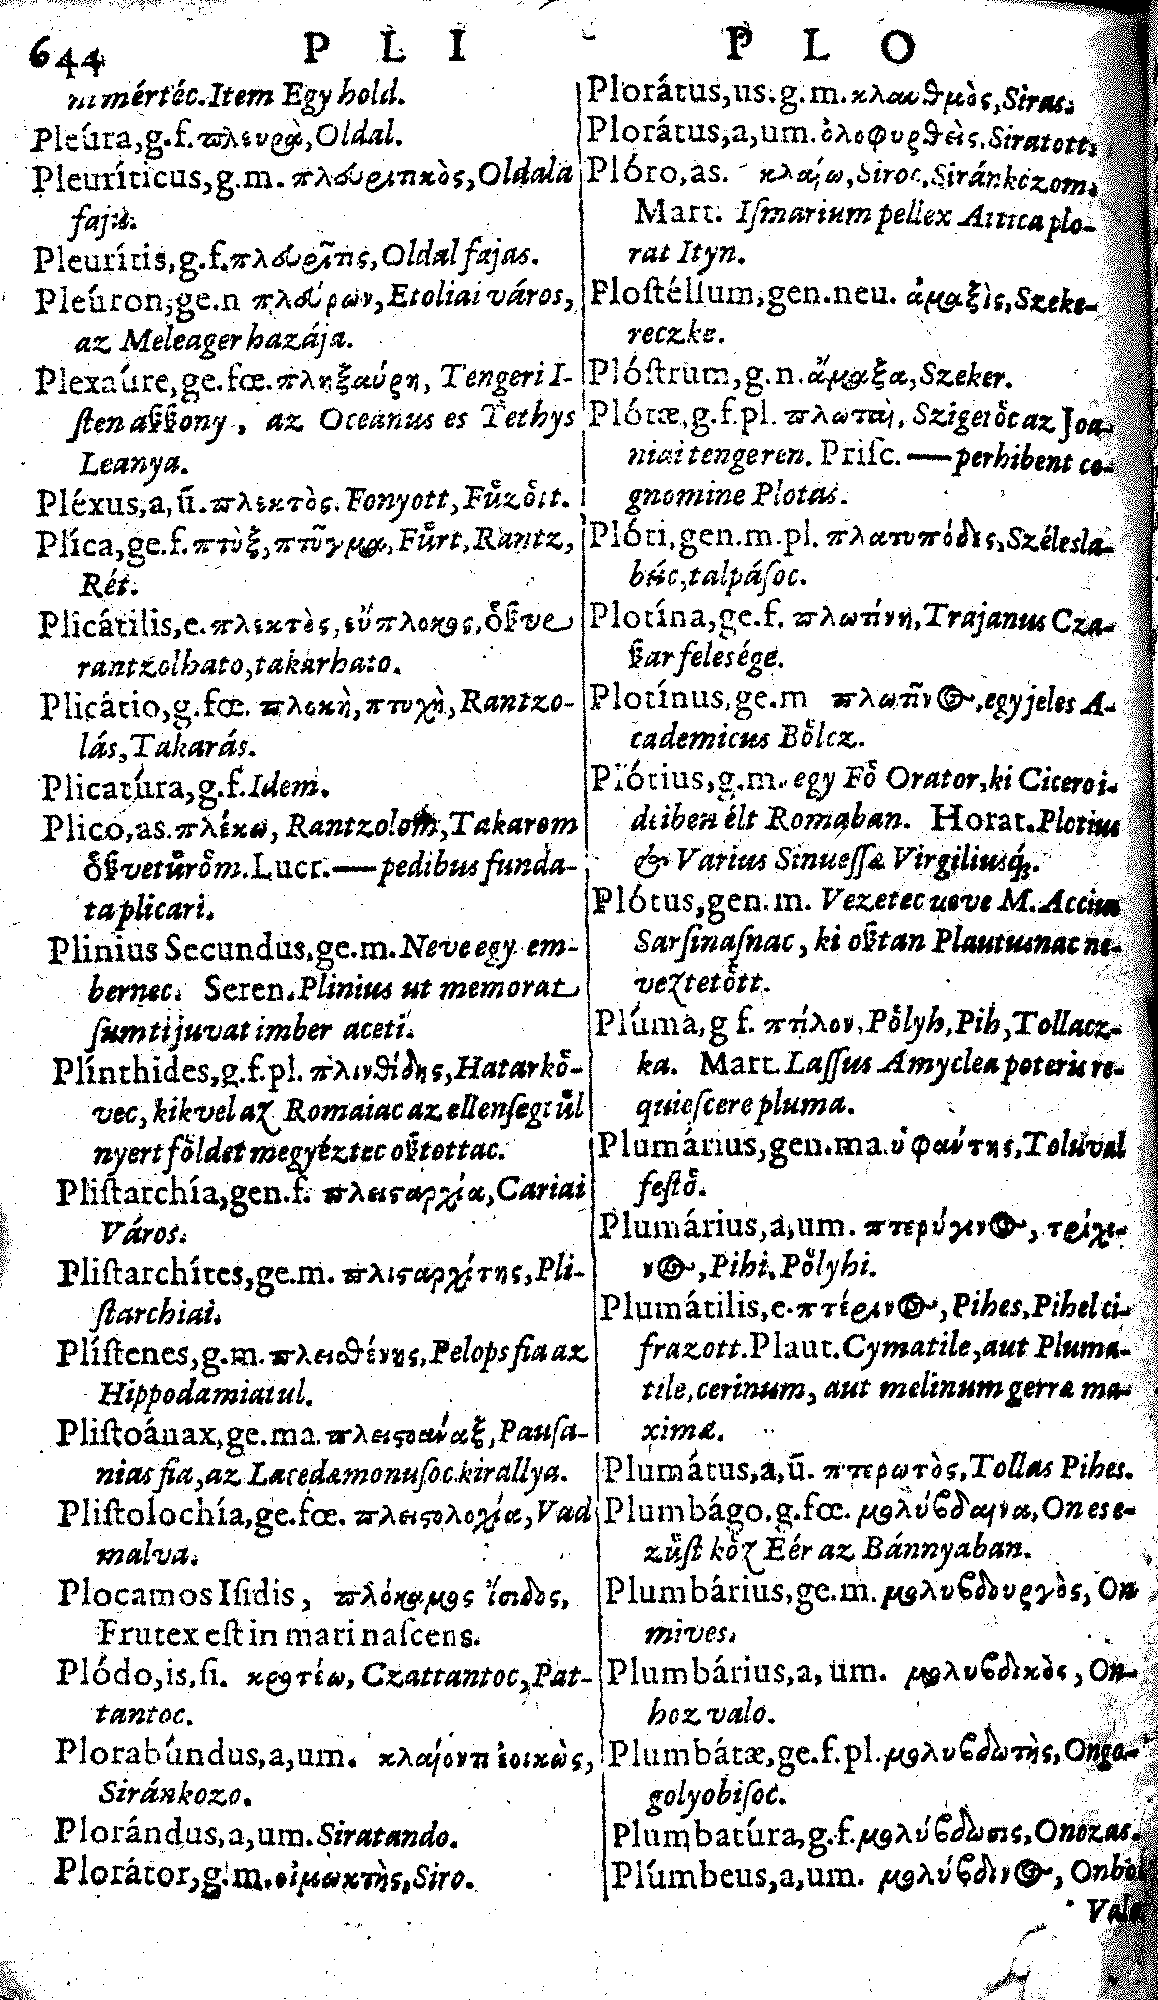 644 PLI PLO
mértéc. Item Egy hold.
Pleúra, g.f. πλευρὰ, Oldal.
Pleuríticus, g.m. πλευριτικὸς, Oldala
fajú.
Pleurítis, g.f. πλευρῖτις, Oldal fajas.
Pleúron, ge.n πλεύρων, Etoliai város,
az Meleager hazája.
Plexaúre, ge. fœ. πληξαύρη, Tengeri I-
ſten aßßony, az Oceanus es Tethys
Leanya.
Pléxus, a, ū. πλεκτὸς. Fonyott, Fűzőtt.
Plíca, ge.f. πτὺξ, πτῦγμα, Fűrt, Rantz,
Rét.
Plicátilis, e. πλεκτὸς, εὔπλοκος, őßve
rantzolhato, takarhato.
Plicátio, g. fœ. πλοκὴ, πτυχὴ, Rantzo-
lás, Takarás.
Plicatúra, g.f. Idem.
Plico, as. πλέκω, Rantzolom, Takarom
őßveteűrőm. Lucr.—pedibus funda-
ta plicari.
Plinius Secundus, ge.m. Neve egy em-
bernec. Seren. Plinius ut memorat
ſumti juvat imber aceti.
Plínthides, g.f.pl. πλινθίδης, Hatarkő-
vec, kikvel az Romaiac az ellenſegtűl
nyert főldet megyéztec oßtottac.
Pliſtarchía, gen.f. πλεισαρχία, Cariai
Város.
Pliſtarchítes, ge.m. πλισαρχίτης, Pli-
ſtarchiai.
Plíſtenes, g.m. πλεισθένης, Pelops fia az
Hippodamiatul.
Pliſtoánax, ge.ma. πλειστοάναξ, Pauſa-
nias fia, az Lacedæmonuſoc kirallya.
Pliſtolochía, ge. fœ. πλειστολοχία, Vad
malva.
Plocamos Iſidis, πλόκαμος ἴσιδος,
Frutex eſt in mari naſcens.
Plódo, is, ſi. κροτέω, Czattantoc, Pat-
tantoc.
Plorabúndus, a, um. κλαίοντι ἐοικὼς,
Siránkozo.
Plorándus, a, um. Siratando.
Plorátor, g.m. οἰμωκτὴς, Siro.
Plorátus, us. g.m. κλαυθμὸς, Siras.
Plorátus, a, um. ὀλοφυρθεὶς, Siratott.
Plóro, as. κλαίω, Siroc, Siránkézom.
Mart. Iſmarium pellex Attica plo-
rat Ityn.
Ploſtéllum, gen. neu. ἁμαξὶς, Szeke-
reczke.
Plóſtrum, g.n. ἅμαξα, Szeker.
Plótæ, g.f.pl. πλωταὶ, Szigetőc az Joa-
niai tengeren. Priſc.—perhibent co-
gnomine Plotas.
Plóti, gen.m.pl. πλατυπόδες, Szélesla-
búc, talpáſoc.
Plotína, ge.f. πλωτίνη, Trajanus Cza-
ßar felesége.
Plotínus, ge.m πλωτῖνος, egy jeles A-
cademicus Bőlcz.
Plótius, g.m. egy Fő Orator, ki Cicero i-
deiben élt Romaban. Horat. Plotius
& Varius Sinueſſæ Virgiliusq́;.
Plótus, gen.m. Vezetec neve M. Accius
Sarſinaſnac, ki oßtan Plautusnac ne-
veztetőtt.
Plúma, g f. πτίλον, Pőlyh, Pih, Tollacz-
ka. Mart. Laſſus Amyclea poteris re-
quieſcere pluma.
Plumárius, gen.ma. ὑφαύτης, Toluval
feſtő.
Plumárius, a, um. πτερύγινος, τρίχι-
νος, Pihi, Pőlyhi.
Plumátilis, e. πτέρινος, Pihes, Pihel ci-
frazott. Plaut. Cymatile, aut Pluma-
tile, cerinum, aut melinum gerræ ma-
ximæ.
Plumátus, a, ū. πτερωτὸς, Tollas Pihes.
Plumbágo, g. fœ. μολύβδαινα, On es e-
zűſt kőz Eér az Bánnyaban.
Plumbárius, ge.m. μολυβδουργὸς, On
mives.
Plumbárius, a, um. μολυβδικὸς, On-
hoz valo.
Plumbátæ, ge.f.pl. μολυβδωτὴς, Onga-
golyobiſoc.
Plumbatúra, g.f. μολύβδωσις, Onozas.
Plúmbeus, a, um. μολύβδινος, Onból
Valo